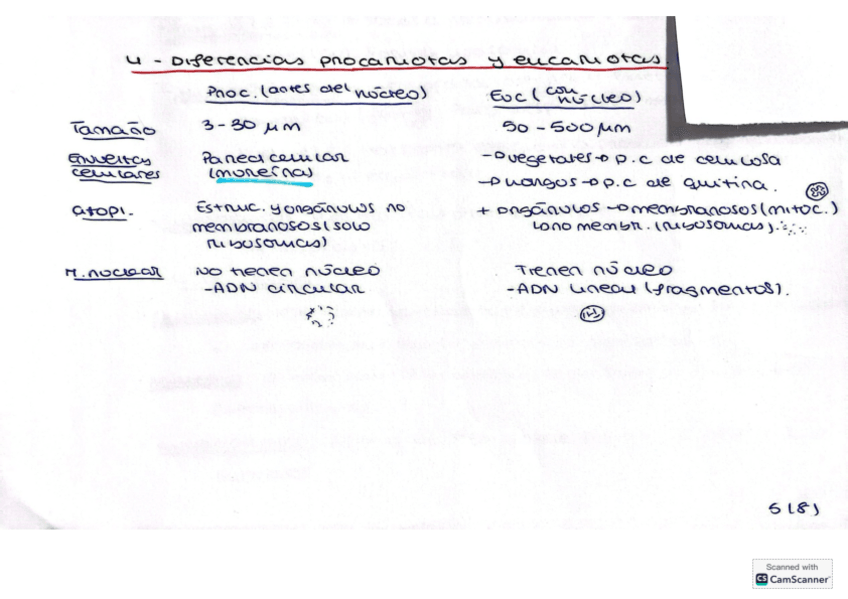 4 - Diferencias procariotas y eucariotas.
Proc. (antes del núcleo)
Euc (con núcleo)
Tamaño
3-30 µm
50-500 µm
Envueltas celulares
Pared celular (moneras)
-> vegetales -> p.c de celulosa
-> hongos -> p.c de quitina.
citopl.
Estruc. y orgánulos no membranosos (solo ribosomas)
+ orgánulos -> membranosos (mitoc.)
no membr. (ribosomas).
M. nuclear
No tienen núcleo
-ADN circular
Tienen núcleo
-ADN lineal (fragmentos).
5 (8)
Scanned with
CS CamScanner